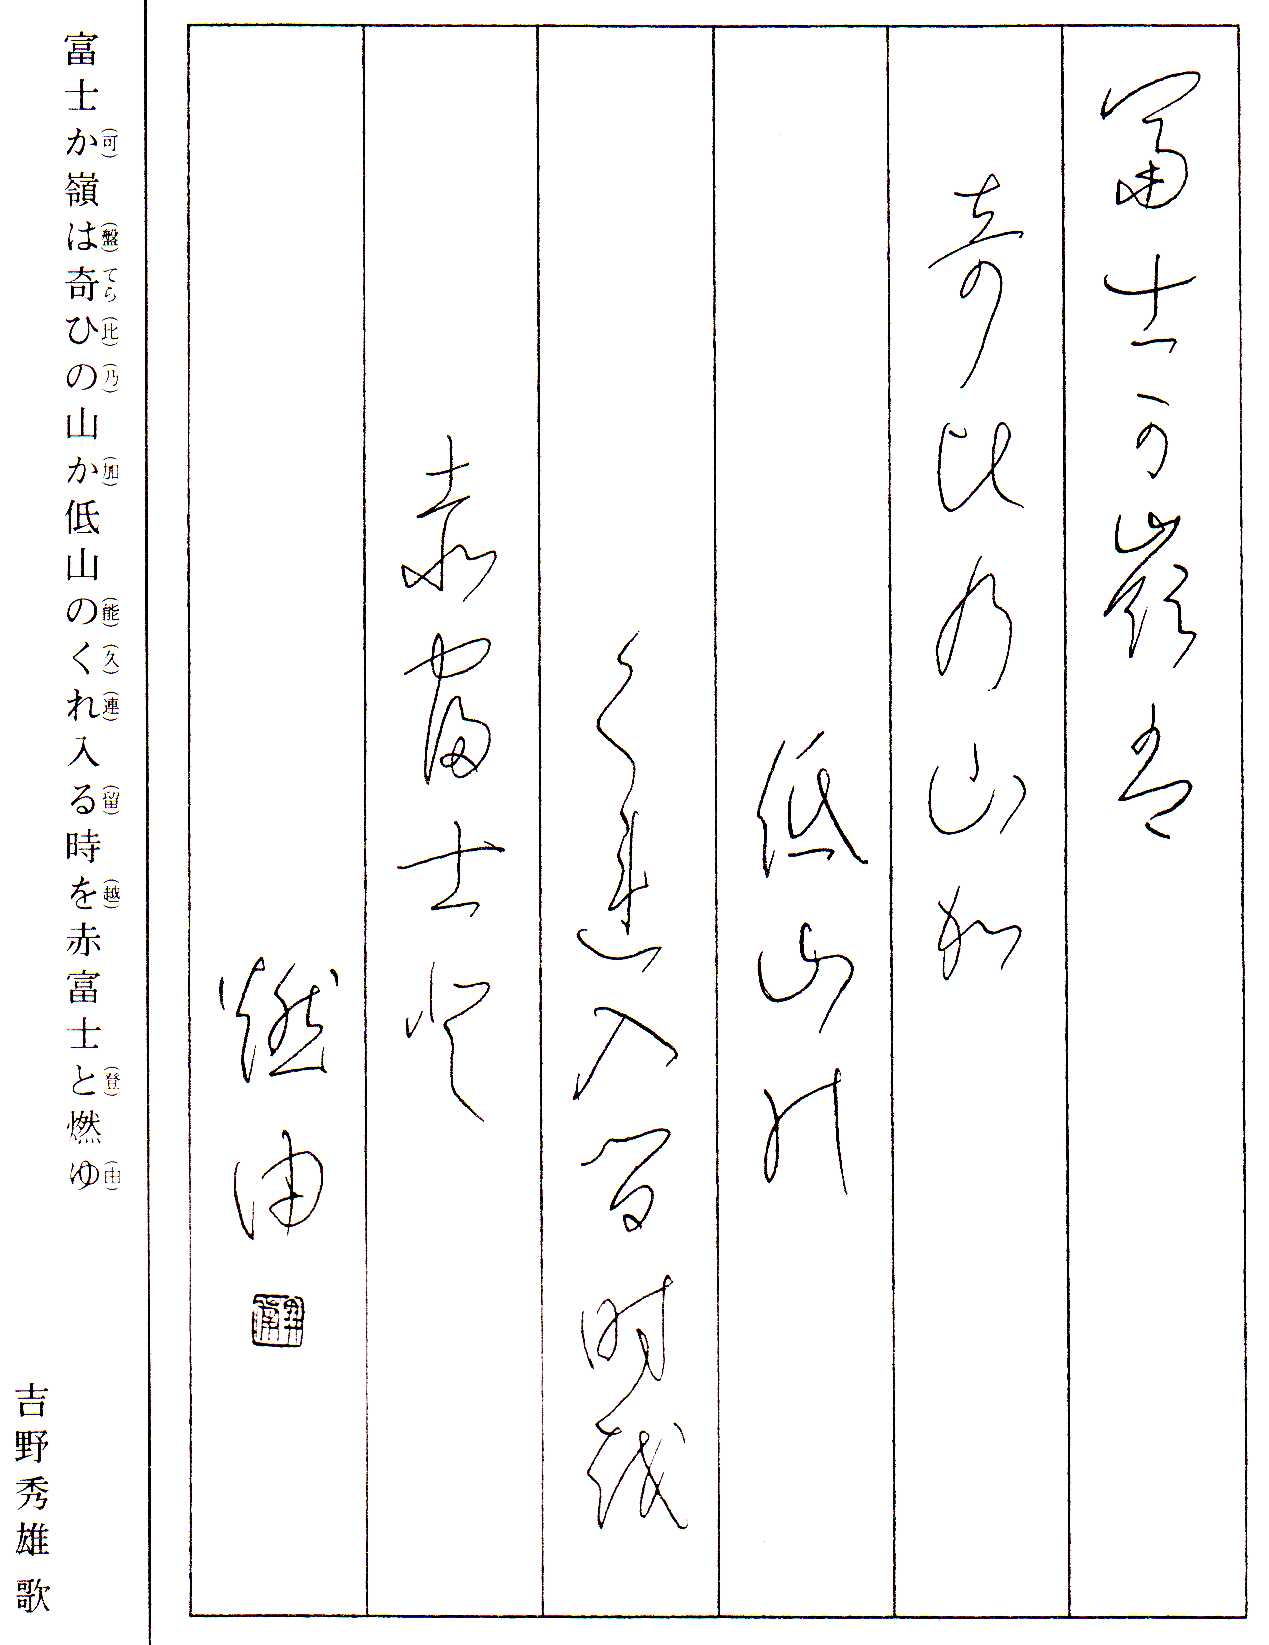 富士可嶺盤
奇比乃山加
低山能
久連入留時越
赤富士登
燃由
富士か(可)嶺は(盤)奇(てら)ひ(比)の(乃)山か(加)低山の(能)く(久)れ(連)入る(留)時を(越)赤富士と(登)燃ゆ(由)
吉野秀雄 歌